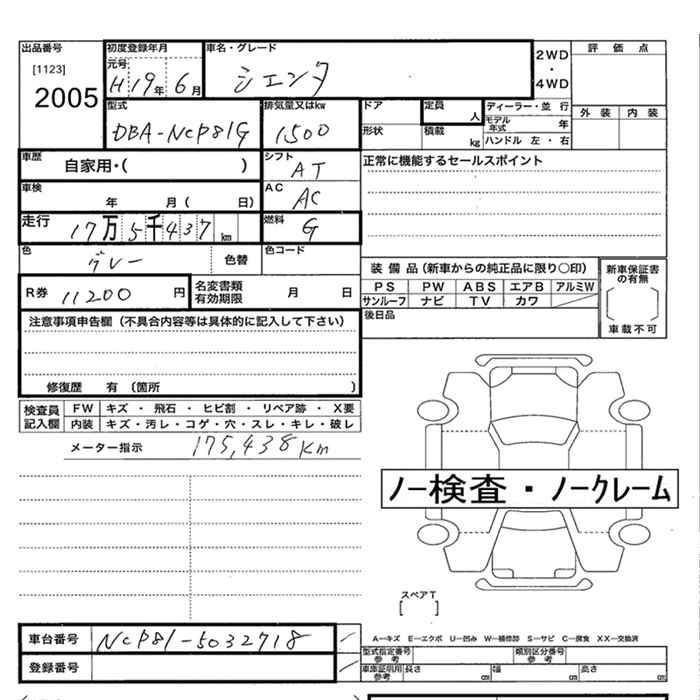 出品番号 初度登録年月 車名・グレード 2WD・4WD 評価点
[1123] 元号
2005 H19年6月 シエンタ 外装 内装
型式 排気量又はkw ドア 定員 人 ディーラー・並行
DBA-NCP81G 1500 形状 積載 kg モデル年式 年
ハンドル 左・右
車歴 自家用・( ) シフト AT 正常に機能するセールスポイント
車検 年 月( 日) AC AC
走行 17万5千437km 燃料 G
色 グレー 色替 色コード
装備品(新車からの純正品に限り○印) 新車保証書の有無
R券 11200円 名変書類有効期限 月 日 PS PW ABS エアB アルミW
サンルーフ ナビ TV カワ
注意事項申告欄(不具合内容等は具体的に記入して下さい) 後日品 車載不可
修復歴 有(箇所 )
検査員記入欄 FW キズ・飛石・ヒビ割・リペア跡・X要
内装 キズ・汚レ・コゲ・穴・スレ・キレ・破レ
メーター指示 175,438km
ノー検査・ノークレーム
スペアT
[ ]
車台番号 NCP81-5032718 A―キズ E―エクボ U―凹み W―補修跡 S―サビ C―腐食 XX―交換済
型式指定番号参考 類別区分番号参考
登録番号 車庫証明用参考 長さ cm 幅 cm 高さ cm